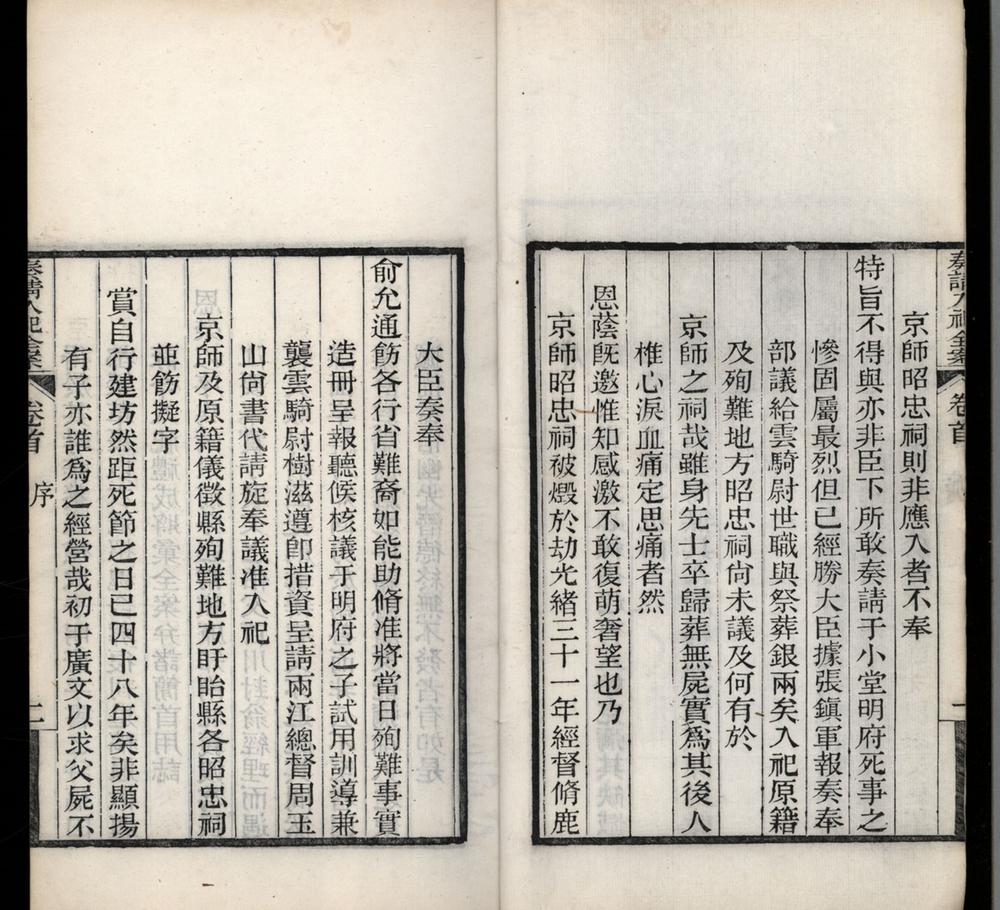 奏請入祀全案
卷首
一
京師昭忠祠則非應入者不奉
特旨不得與亦非臣下所敢奏請于小堂明府死事之
慘固屬最烈但已經勝大臣據張鎮軍報奏奉
部議給雲騎尉世職與祭葬銀兩矣入祀原籍
及殉難地方昭忠祠尙未議及何有於
京師之祠哉雖身先士卒歸葬無屍實爲其後人
椎心淚血痛定思痛者然
恩蔭旣邀惟知感激不敢復萌奢望也乃
京師昭忠祠被燬於劫光緒三十一年經督脩鹿
大臣奏奉
俞允通飭各行省難裔如能助脩准將當日殉難事實
造冊呈報聽候核議于明府之子試用訓導兼
襲雲騎尉樹滋遵卽措資呈請兩江總督周玉
山尙書代請旋奉議准入祀
京師及原籍儀徵縣殉難地方盱眙縣各昭忠祠
並飭擬字
賞自行建坊然距死節之日已四十八年矣非顯揚
有子亦誰爲之經營哉初于廣文以求父屍不
奏請入祀全案
卷首
序
二